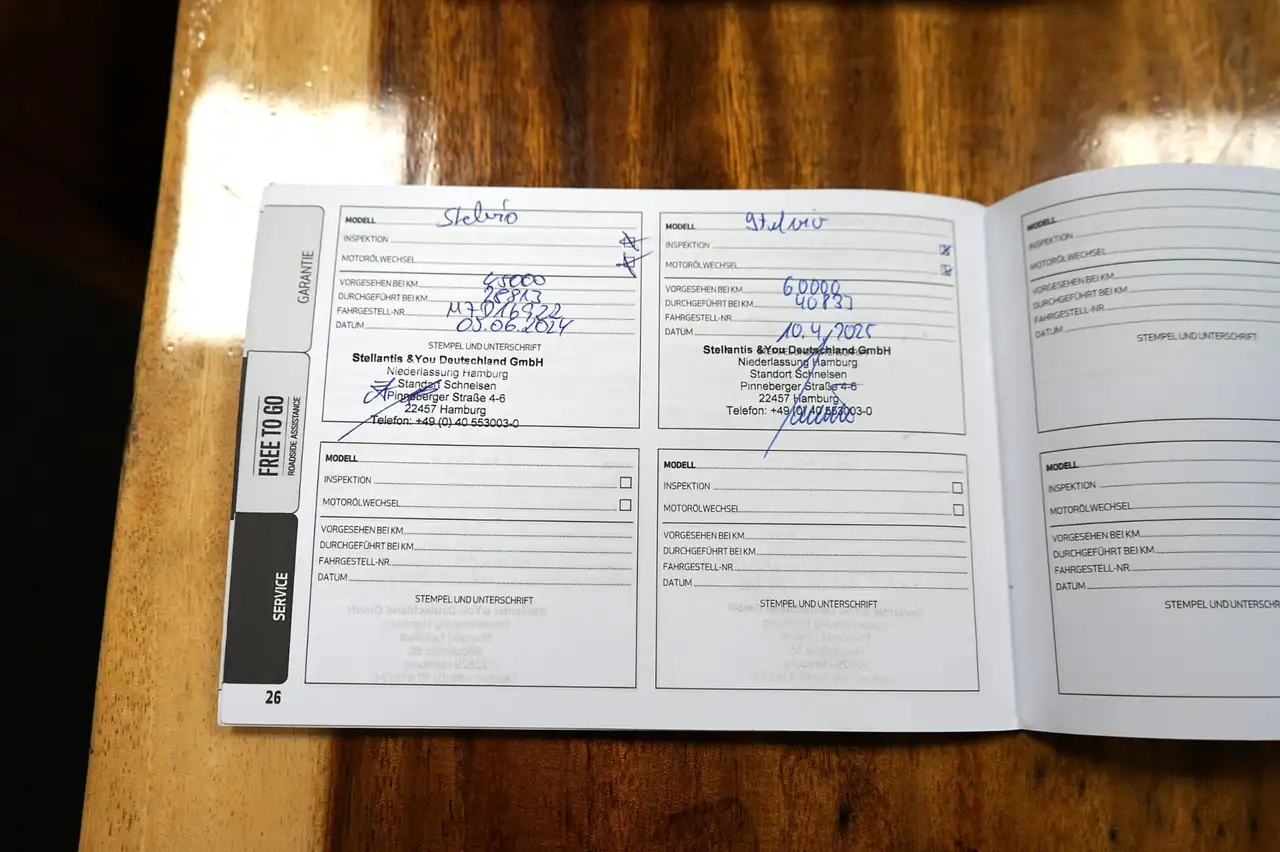 GARANTIE
FREE TO GO
ROADSIDE ASSISTANCE
SERVICE
26
MODELL Stelvio
INSPEKTION
MOTORÖLWECHSEL
VORGESEHEN BEI KM 45000
DURCHGEFÜHRT BEI KM 28813
FAHRGESTELL-NR. M7D16922
DATUM 05.06.2024
STEMPEL UND UNTERSCHRIFT
Stellantis &You Deutschland GmbH
Niederlassung Hamburg
Standort Schnelsen
Pinneberger Straße 4-6
22457 Hamburg
Telefon: +49 (0) 40 553003-0
MODELL Stelvio
INSPEKTION
MOTORÖLWECHSEL
VORGESEHEN BEI KM 60000
DURCHGEFÜHRT BEI KM 40837
FAHRGESTELL-NR.
DATUM 10.4.2025
Stellantis &You Deutschland GmbH
Niederlassung Hamburg
Standort Schnelsen
Pinneberger Straße 4-6
22457 Hamburg
Telefon: +49 (0) 40 553003-0
MODELL
INSPEKTION
MOTORÖLWECHSEL
VORGESEHEN BEI KM
DURCHGEFÜHRT BEI KM
FAHRGESTELL-NR.
DATUM
STEMPEL UND UNTERSCHRIFT
MODELL
INSPEKTION
MOTORÖLWECHSEL
VORGESEHEN BEI KM
DURCHGEFÜHRT BEI KM
FAHRGESTELL-NR.
DATUM
STEMPEL UND UNTERSCHRIFT
MODELL
INSPEKTION
MOTORÖLWECHSEL
VORGESEHEN BEI KM
DURCHGEFÜHRT BEI KM
FAHRGESTELL-NR.
DATUM
STEMPEL UND UNTERSCHRIFT
MODELL
INSPEKTION
MOTORÖLWECHSEL
VORGESEHEN BEI KM
DURCHGEFÜHRT BEI KM
FAHRGESTELL-NR.
DATUM
STEMPEL UND UNTERSCHR